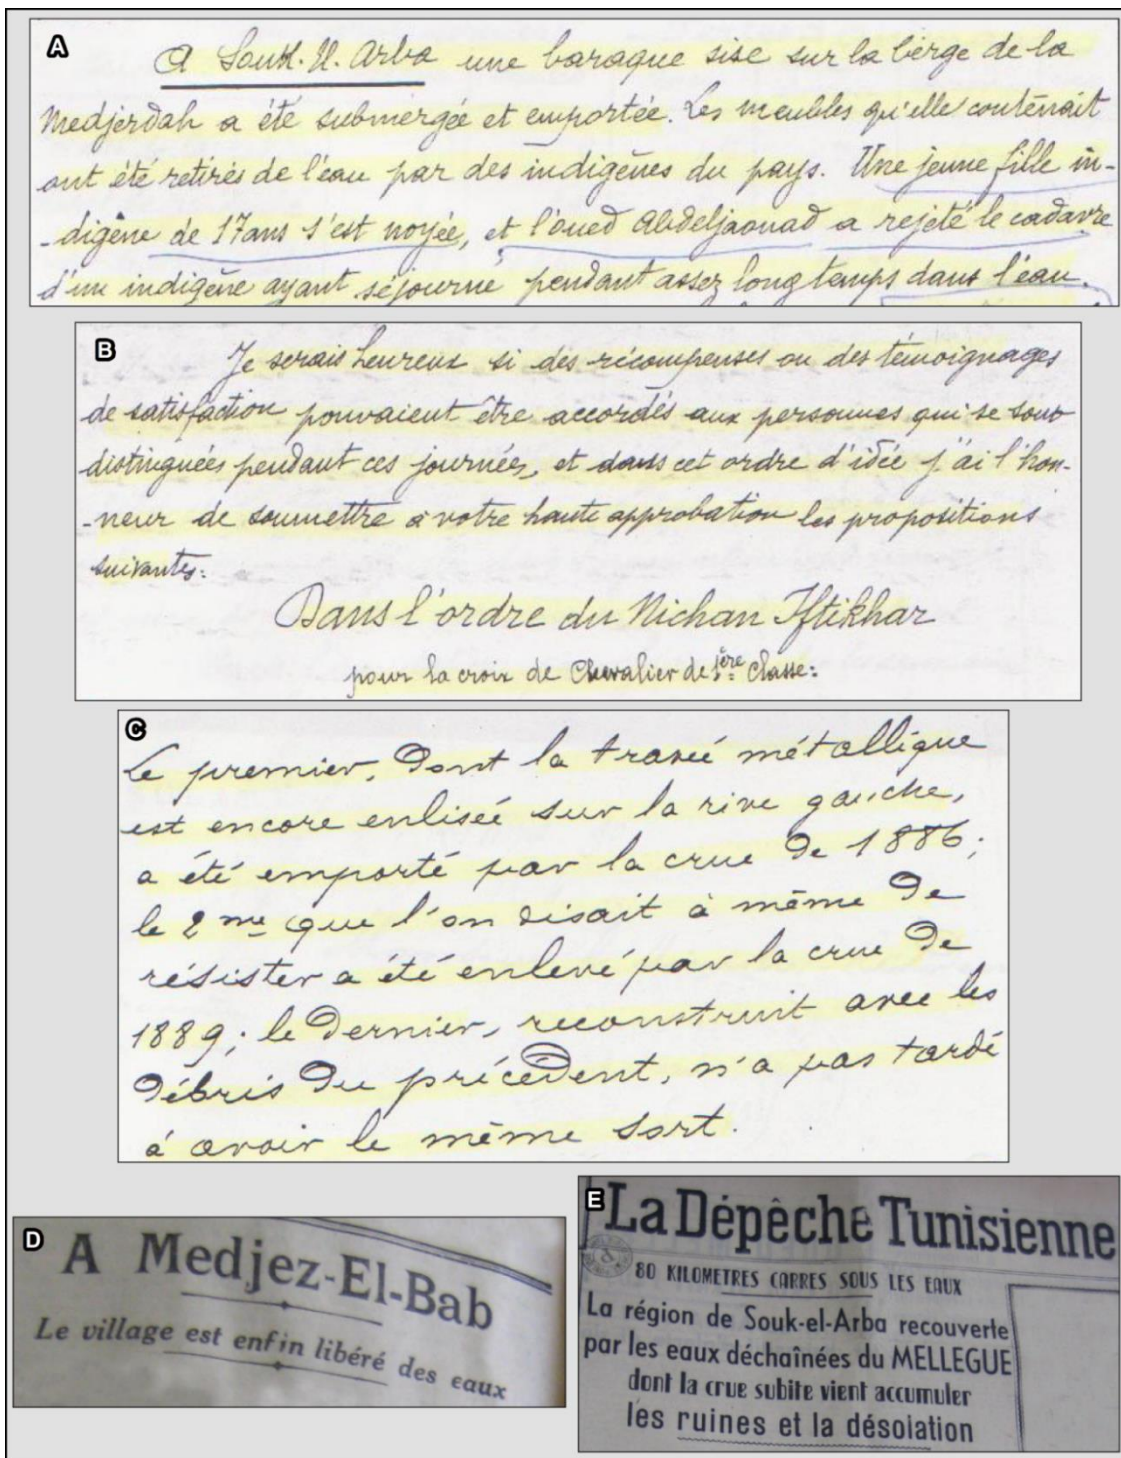 A
A Souk. El. Arba une baraque sise sur la berge de la
Medjerdah a été submergée et emportée. Les meubles qu'elle contenait
ont été retirés de l'eau par des indigènes du pays. Une jeune fille in-
-digène de 17 ans s'est noyée, et l'oued Abdeljaouad a rejeté le cadavre
d'un indigène ayant séjourné pendant assez longtemps dans l'eau.
B
Je serais heureux si des récompenses ou des témoignages
de satisfaction pouvaient être accordés aux personnes qui se sont
distinguées pendant ces journées, et dans cet ordre d'idée j'ai l'hon-
-neur de soumettre à votre haute approbation les propositions
suivantes:
Dans l'ordre du Nichan Iftikhar
pour la croix de Chevalier de 1ère Classe:
C
Le premier, dont la travée métallique
est encore enlisée sur la rive gauche,
a été emporté par la crue de 1886;
le 2me que l'on disait à même de
résister a été enlevé par la crue de
1889; le dernier, reconstruit avec les
débris du précédent, n'a pas tardé
à avoir le même sort.
D
A Medjez-El-Bab
Le village est enfin libéré des eaux
E
La Dépêche Tunisienne
80 KILOMETRES CARRES SOUS LES EAUX
La région de Souk-el-Arba recouverte
par les eaux déchaînées du MELLEGUE
dont la crue subite vient accumuler
les ruines et la désolation